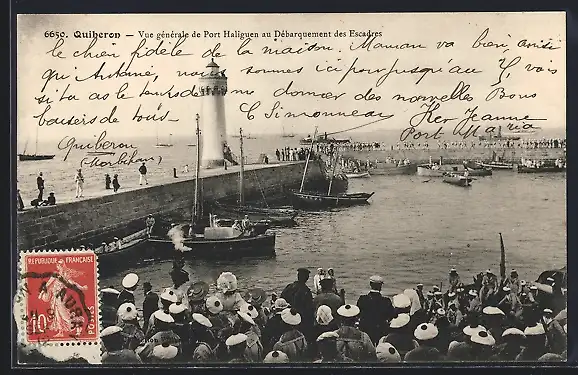 6650. Quiberon – Vue générale de Port Haliguen au Débarquement des Escadres
le chien fidèle de la maison. Maman va bien, ainsi
qu'Antoine, nous sommes ici pour jusqu'au
si tu as le temps de me donner des nouvelles Bons
baisers de tous C Simonneau Ker Jeanne
Quiberon Port Maria
(Morbihan)
RÉPUBLIQUE FRANÇAISE
10
POSTES